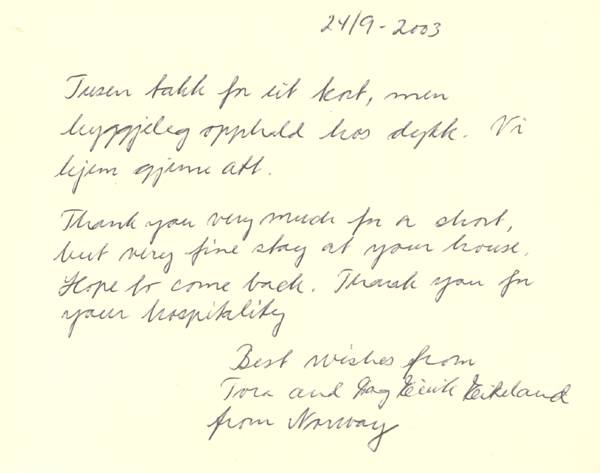 24/9-2003
Tusen takk for eit kort, men
hyggjeleg opphald hos dykk. Vi
kjem gjerne att.
Thank you very much for a short,
but very fine stay at your house.
Hope to come back. Thank you for
your hospitality
Best wishes from
Tora and Dag Eirik Eikeland
from Norway